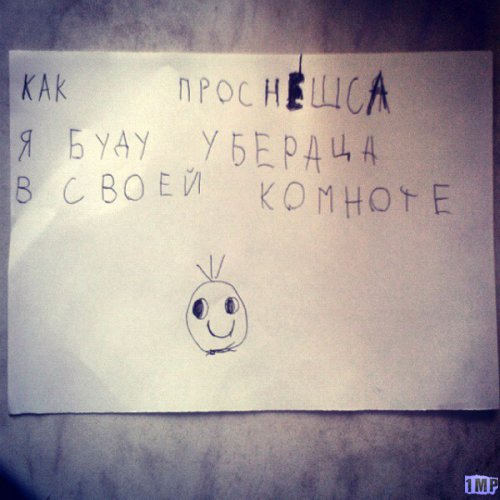 КАК ПРОСНЕШСА
Я БУДУ УБЕРАЦА
В СВОЕЙ КОМНОТЕ
1MP